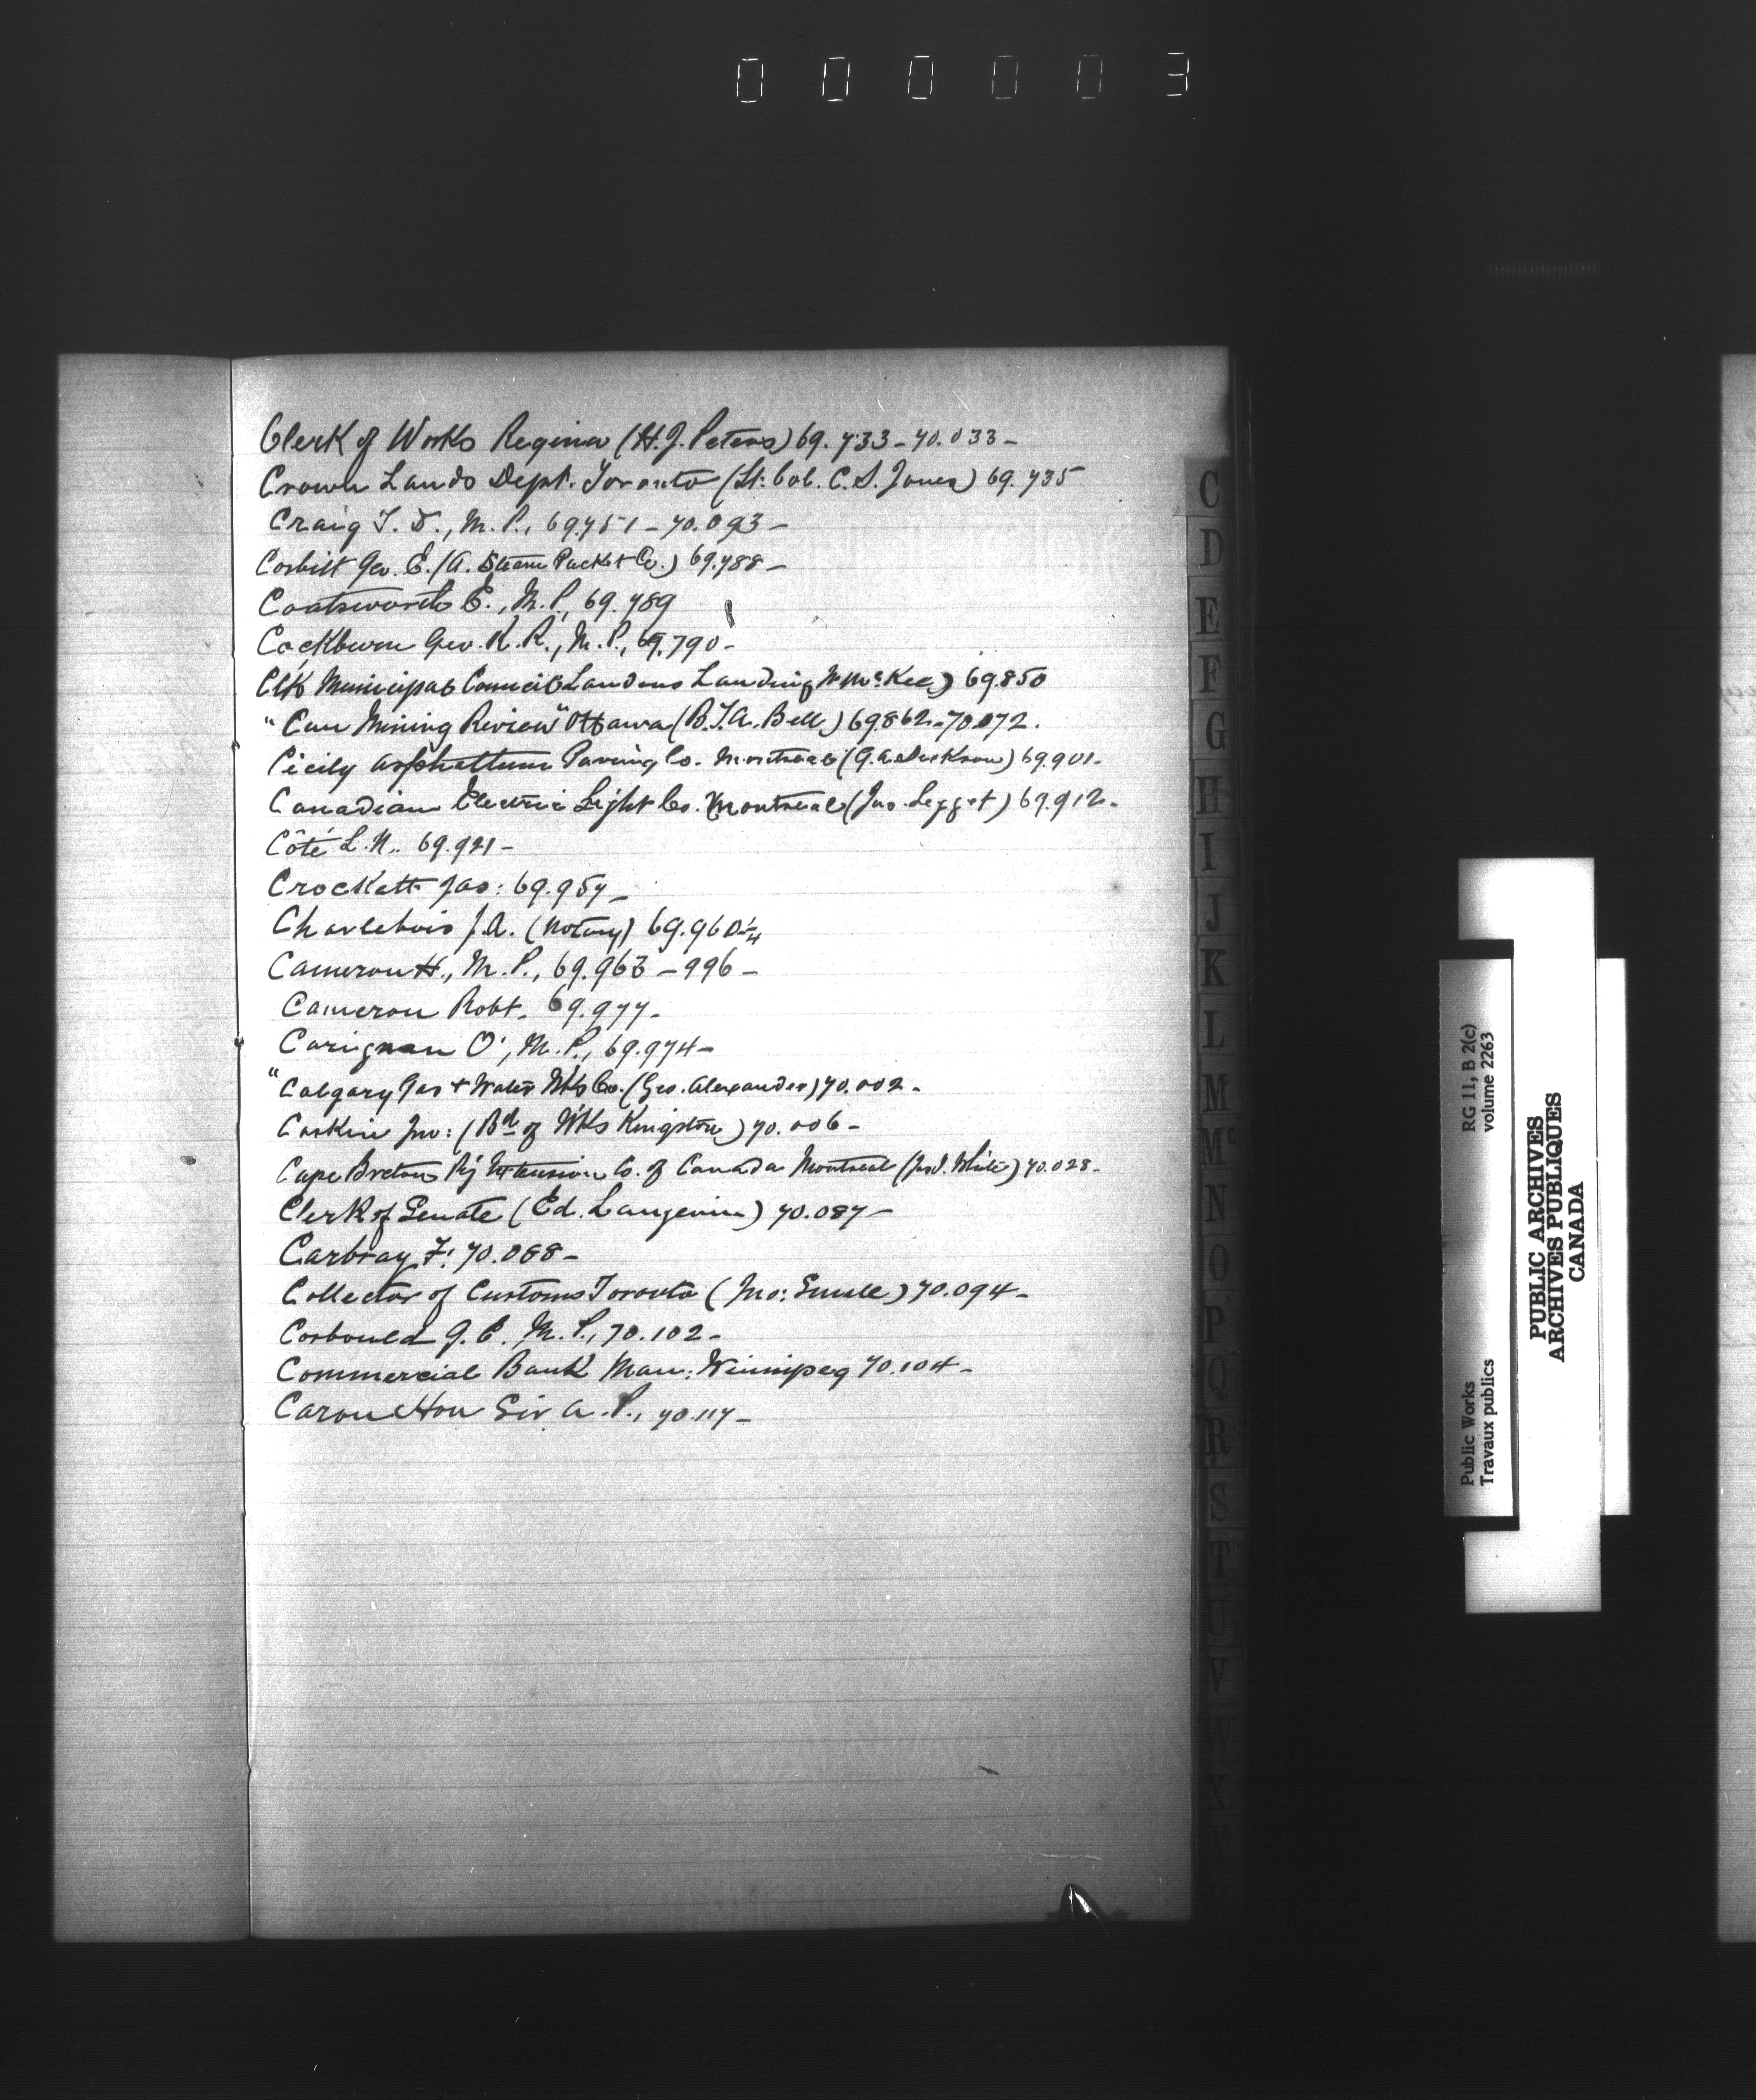 000003
Clerk of Works Regina (H.J. Peters) 69.733 - 70.033 -
Crown Lands Dept. Toronto (Lt: Col. C. S. Jones) 69.735
Craig T. D., M. P., 69.751 - 70.093 -
Corbitt Geo. E. (A. Steam Packet Co.) 69.788 -
Coatsworth E., M. P., 69.789
Cockburn Geo. R. R., M. P., 69.790 -
Clk Municipal Council Landing McKee) 69.850
"Can Mining Review" Ottawa (B.T.A. Bell) 69.862 - 70.072.
Cicily asphaltum Paving Co. Montreal (G. a Jackson) 69.901 -
Canadian Electric Light Co. Montreal (Jno. Legget) 69.912 -
Côté L. N. 69.921 -
Crockett Jas: 69.957 -
Charlebois J. A. (Notary) 69.960 1/4
Cameron H., M. P., 69.963 - 996 -
Cameron Robt. 69.977 -
Carignan O:, M. P., 69.974 -
"Calgary Gas + Water Wks Co. (Geo. Alexander) 70.002 -
Jno: (Bd of Wks Kingston) 70.006 -
Cape Breton Ry Extension Co. of Canada Montreal (White) 70.028 -
Clerk of Senate (Ed. Langevin) 70.087 -
Carbray F: 70.088 -
Collector of Customs Toronto (Jno: Small) 70.094 -
Corbould G. E. M. P., 70.102 -
Commercial Bank Man: Winnipeg 70.104 -
Caron Hon Sir A. P., 70.117 -
C
D
E
F
G
H
I
J
K
L
M
Mc
N
O
P
Q
R
S
T
U
V
W
X
RG 11, B 2(c)
volume 2263
Public Works
Travaux publics
PUBLIC ARCHIVES
ARCHIVES PUBLIQUES
CANADA